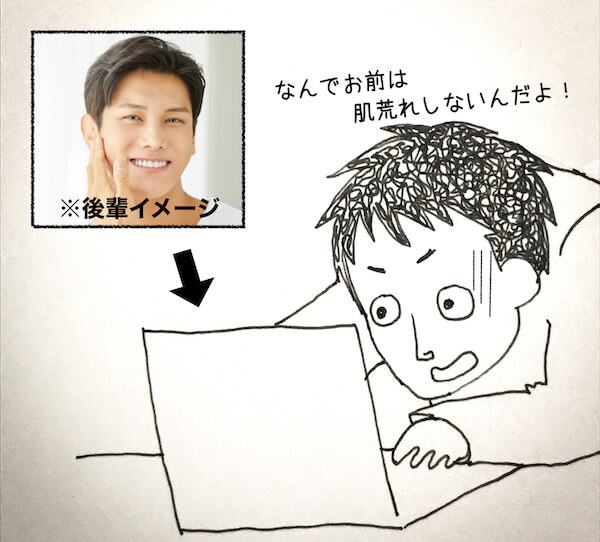 なんでお前は
肌荒れしないんだよ！
※後輩イメージ